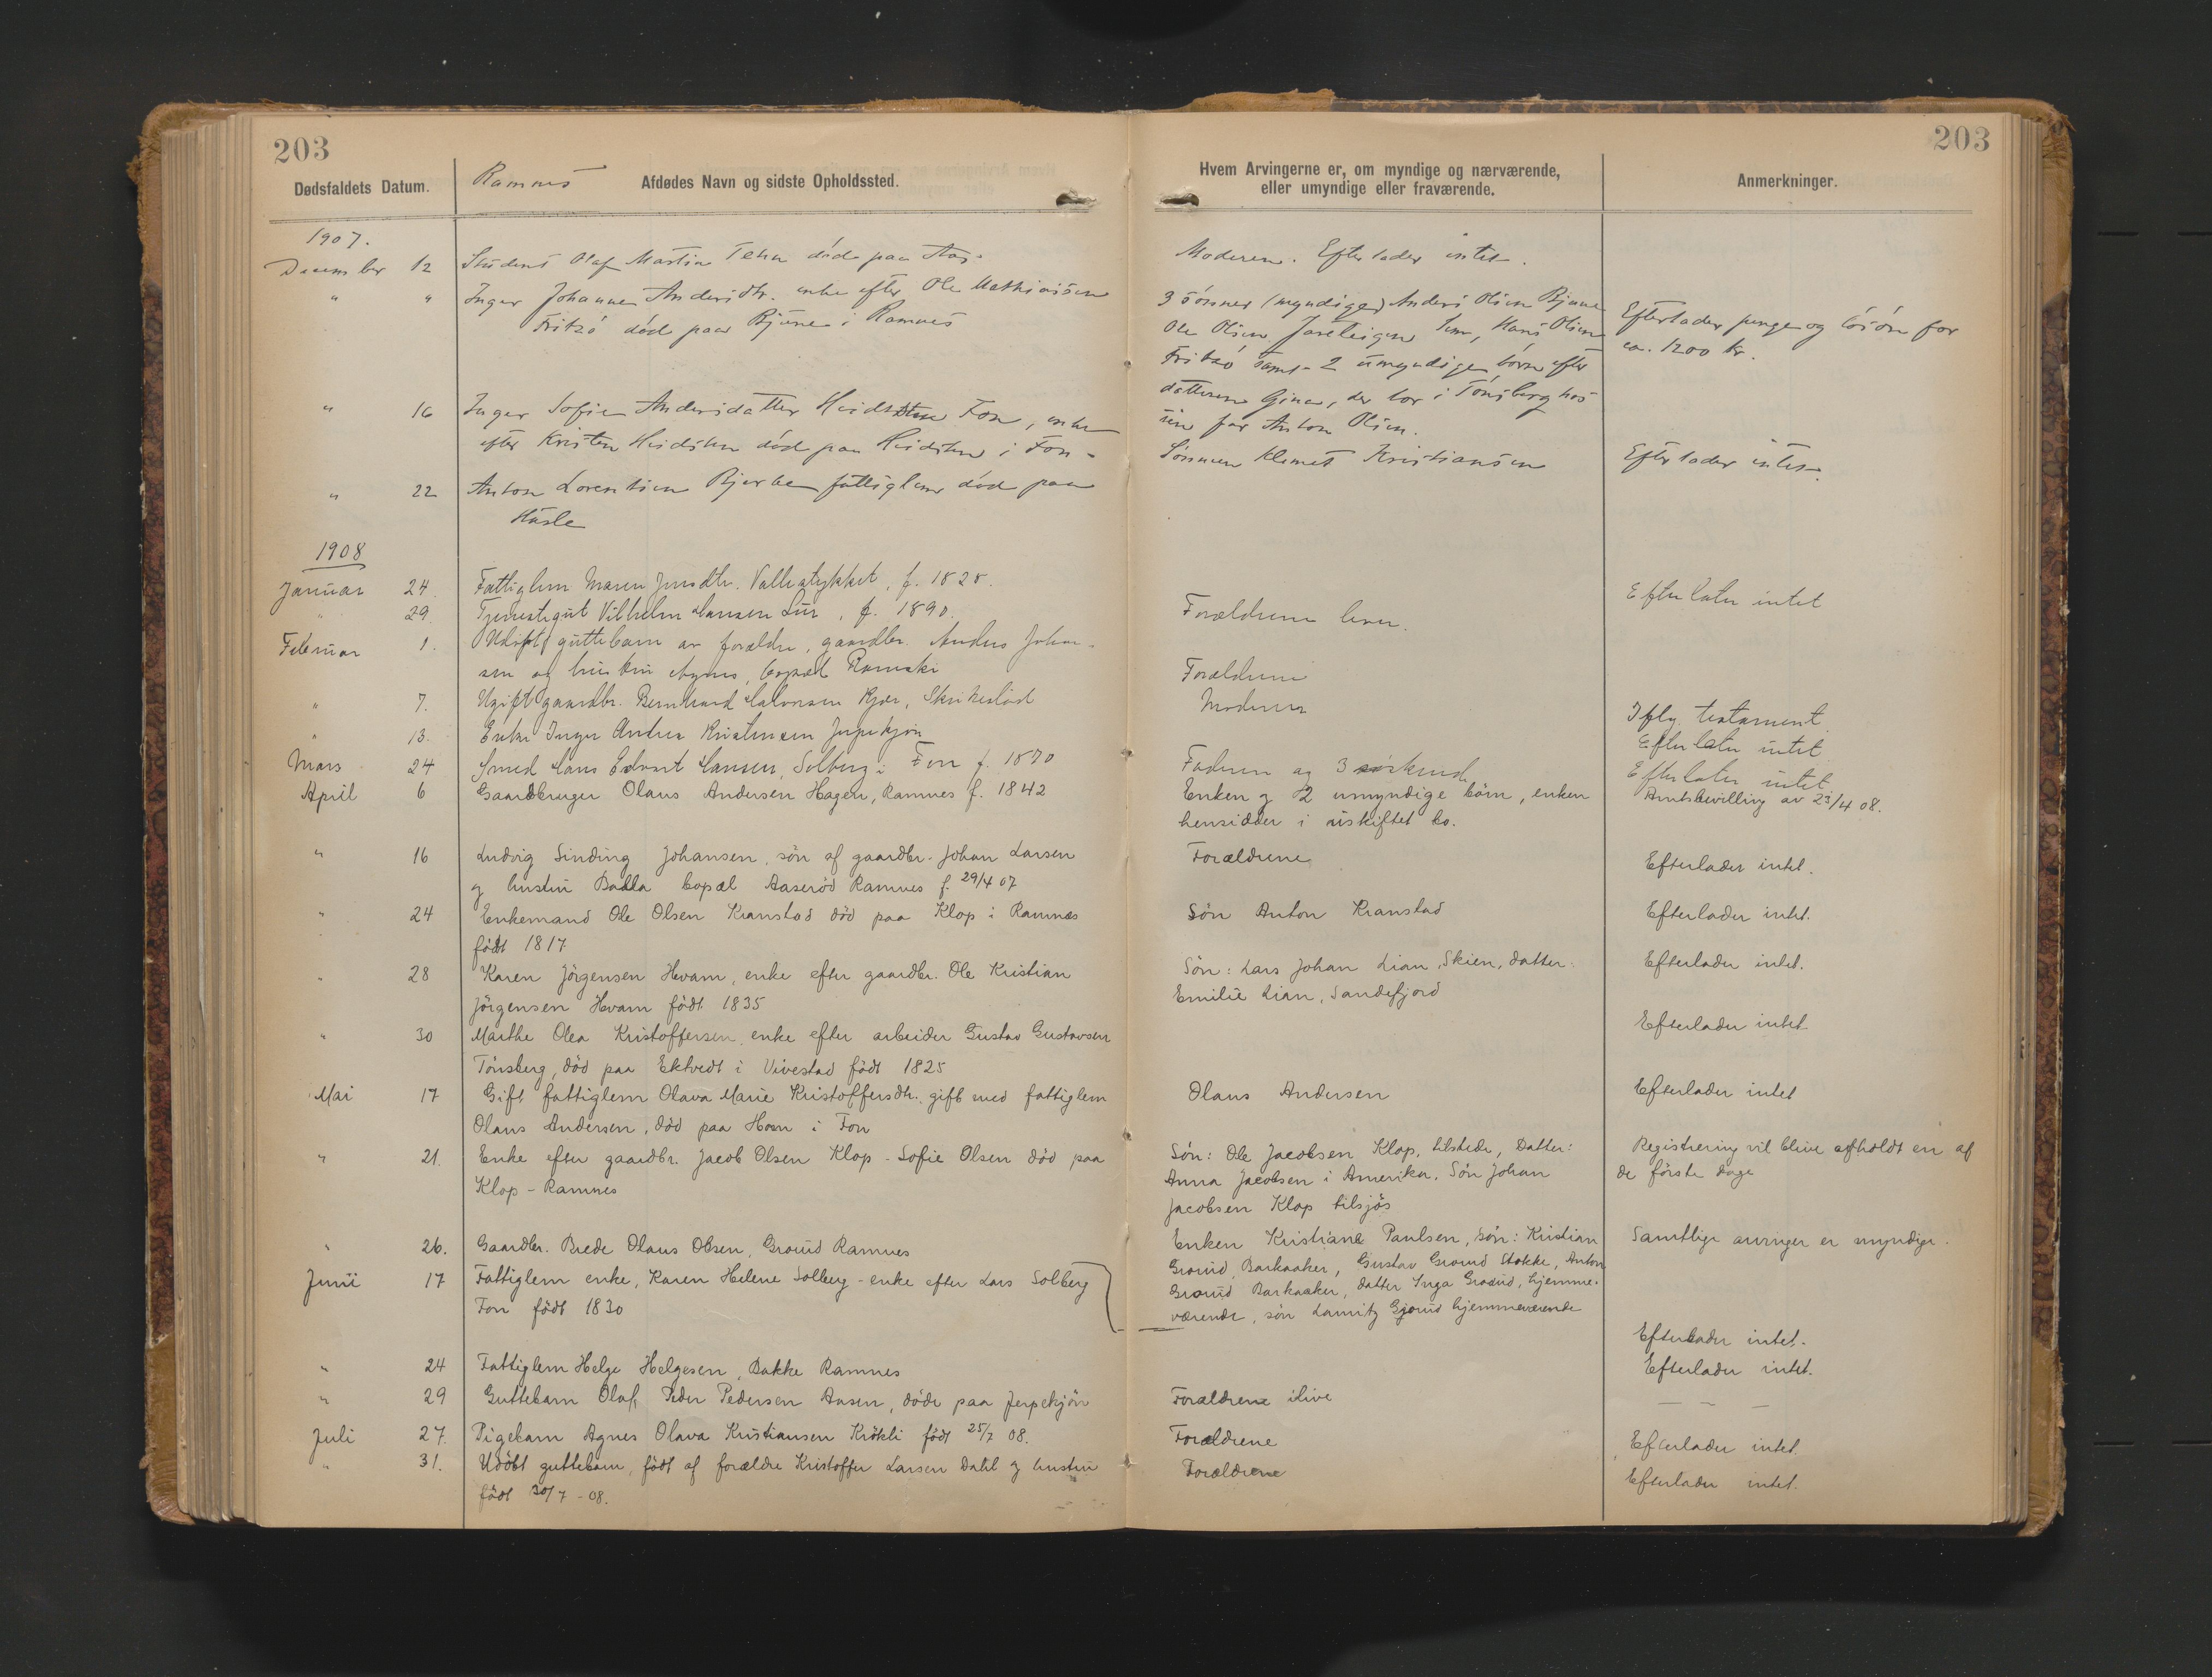 203
203
Dødsfaldets Datum.
Ramnes
Afdødes Navn og sidste Opholdssted.
Hvem Arvingerne er, om myndige og nærværende,
eller umyndige eller fraværende.
Anmerkninger.
1907.
December 12 Student Olaf Martin død paa
Moderen. Efterlader intet.
" " Inger Johanne Andersdtr. enke efter Ole Mathiasen
Fritzö död paa Bjune i Ramnes
3 sönner (myndige) Anders Olsen Bjune
Ole Olsen Sem, Hans Olsen
Fritzö samt 2 umyndige börn efter
datteren Gina, der bor i Tönsberg hos
sin far Anton Olsen.
Efterlader penge og lösöre for
ca. 1200 kr.
" 16 Inger Sofie Andersdatter Fon, enke
efter Kristen død paa i Fon
Sönnen Klemet Kristiansen
Efterlader intet.
" 22 Anton Lorentsen fattiglem död paa
Hasle
1908
Januar 24. Fattiglem Maren Jensdtr. Vallestykket, f. 1825.
Efterlater intet
" 29. Tjenestegut Vilhelm Hansen Lur, f. 1890.
Forældrene lever.
Februar 1. Udöpt guttebarn av forældre, gaardbr. Anders Johan-
sen og hustru Agnes, bopæl Ramski
Forældrene
" 7. Ugift gaardbr. Bernhard Halvorsen Kjær,
Moderen
Ifly. testament
" 13. Enke Inger Andrea Kristensen Jerpekjön
Efterlater intet
Mars 24 Smed Hans Edvart Hansen, Solberg i Fon f. 1870
Faderen og 3 söskende
Efterlater intet
April 6 Gaardbruger Olaus Andersen Hagen, Ramnes f. 1842
Enken og 2 umyndige börn, enken
hensidder i uskiftet bo.
Amtsbevilling av 23/4 08.
" 16 Ludvig Sinding Johansen, sön af gaardbr. Johan Larsen
og hustru Balla bopæl Aaseröd Ramnes f. 29/4 07
Forældrene
Efterlader intet.
" 24 Enkemand Ole Olsen Kranstad död paa Klop i Ramnæs
födt 1817
Sön Anton Kranstad
Efterlader intet.
" 28 Karen Jörgensen Hvam, enke efter gaardbr. Ole Kristian
Jörgensen Hvam födt 1835
Sön: Lars Johan Lian, Skien, datter:
Emilie Lian, Sandefjord
Efterlader intet.
" 30 Marthe Olea Kristoffersen, enke efter arbeider Gustav Gustavsen
Tönsberg, död paa Ektvedt i Vivestad födt 1825
Efterlader intet
Mai 17 Gift fattiglem Olava Marie Kristoffersdtr. gift med fattiglem
Olaus Andersen, död paa Horn i Fon
Olaus Andersen
Efterlader intet
" 21. Enke efter gaardbr. Jacob Olsen Klop - Sofie Olsen död paa
Klop - Ramnes
Sön: Ole Jacobsen Klop, tilstede, Datter:
Anna Jacobsen i Amerika. Sön Johan
Jacobsen Klop tilsjös
Registrering vil blive afholdt en af
de förste dage
" 26. Gaardbr. Brede Olaus Olsen, Groüd Ramnes
Enken Kristiane Paulsen, Sön: Kristian
Groüd, Barkaaker, Gustav Groüd Stokke, Anton
Groüd Barkaaker, datter Inga Groüd, hjemme-
værende, sön Lauritz Groüd hjemmeværende
Samtlige arvinger er myndige.
Juni 17 Fattiglem enke, Karen Helene Solberg - enke efter Lars Solberg
Fon födt 1830
Efterlader intet.
" 24 Fattiglem Helge Helgesen, Bakke Ramnes
Efterlader intet.
" 29 Guttebarn Olaf, Peder Pedersen Aasen, döde paa Jerpekjön
Forældrene ilive
— — —
Juli 27. Pigebarn Agnes Olava Kristiansen Krökli födt 25/7 08.
Forældrene
Efterlader intet.
" 31. Udöbt guttebarn, födt af forældre Kristoffer Larsen Dahl og hustru
födt 30/7 - 08.
Forældrene
Efterlader intet.